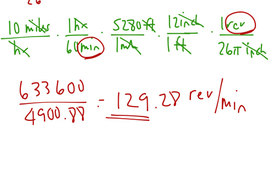 26
10 miles/hr · 1 hr/60 min · 5280 ft/1 mile · 12 inch/1 ft · 1 rev/26π inch
633600/4900.88 = 129.28 rev/min